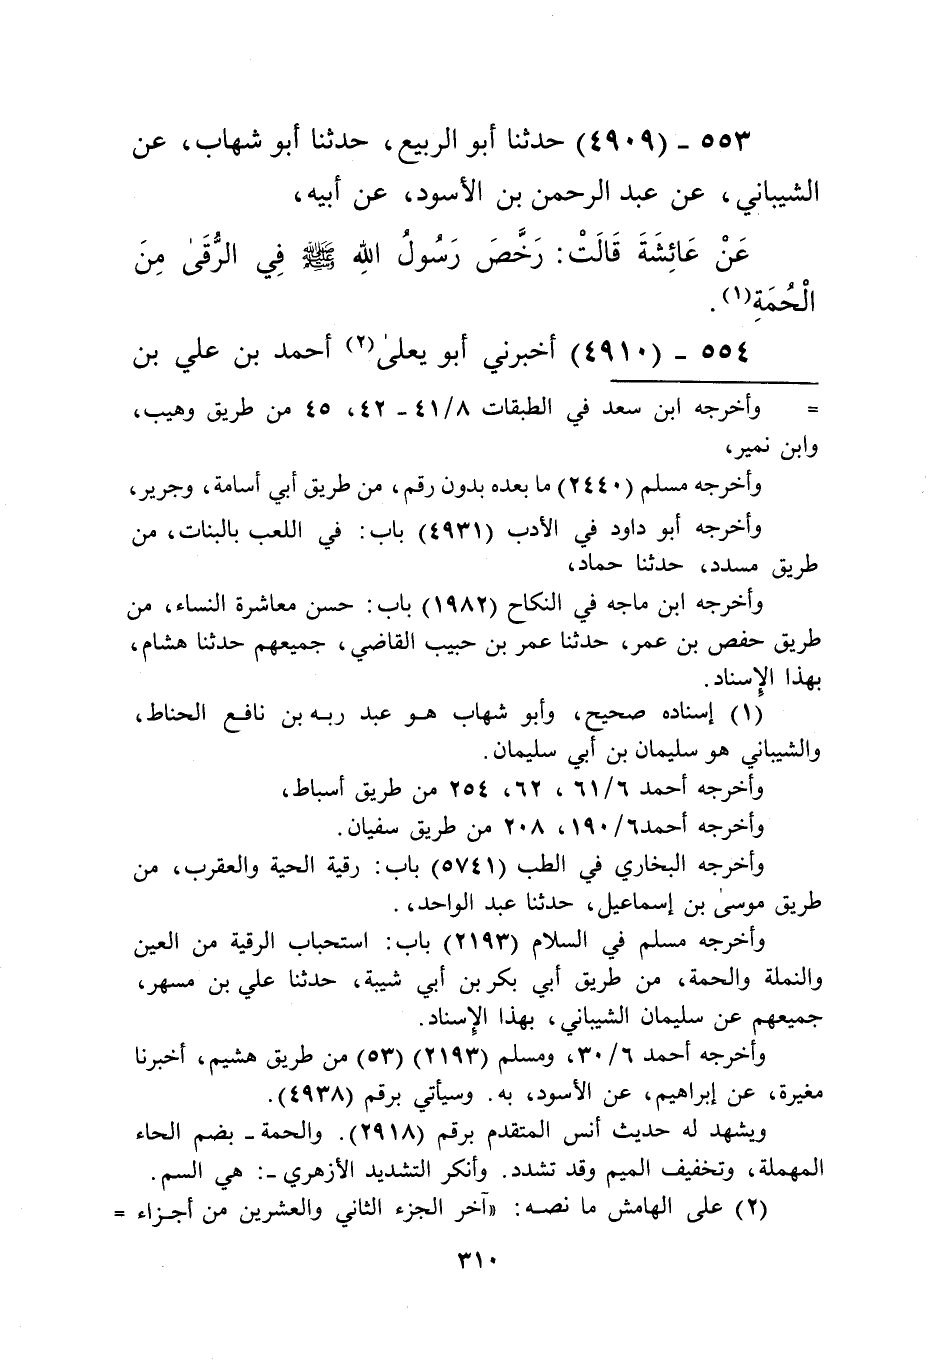 ٥٥٣ - (٤٩٠٩) حدثنا أبو الربيع، حدثنا أبو شهاب، عن
الشيباني، عن عبد الرحمن بن الأسود، عن أبيه،
عَنْ عَائِشَةَ قَالَتْ: رَخَّصَ رَسُولُ اللهِ ﷺ فِي الرُّقَىٰ مِنَ
الْحُمَةِ(١).
٥٥٤ - (٤٩١٠) أخبرني أبو يعلىٰ(٢) أحمد بن علي بن
= وأخرجه ابن سعد في الطبقات ٤١/٨ - ٤٢، ٤٥ من طريق وهيب،
وابن نمير،
وأخرجه مسلم (٢٤٤٠) ما بعده بدون رقم، من طريق أبي أسامة، وجرير،
وأخرجه أبو داود في الأدب (٤٩٣١) باب: في اللعب بالبنات، من
طريق مسدد، حدثنا حماد،
وأخرجه ابن ماجه في النكاح (١٩٨٢) باب: حسن معاشرة النساء، من
طريق حفص بن عمر، حدثنا عمر بن حبيب القاضي، جميعهم حدثنا هشام،
بهذا الإسناد.
(١) إسناده صحيح، وأبو شهاب هو عبد ربه بن نافع الحناط،
والشيباني هو سليمان بن أبي سليمان.
وأخرجه أحمد ٦١/٦ ، ٦٢، ٢٥٤ من طريق أسباط،
وأخرجه أحمد١٩٠/٦، ٢٠٨ من طريق سفيان.
وأخرجه البخاري في الطب (٥٧٤١) باب: رقية الحية والعقرب، من
طريق موسىٰ بن إسماعيل، حدثنا عبد الواحد، .
وأخرجه مسلم في السلام (٢١٩٣) باب: استحباب الرقية من العين
والنملة والحمة، من طريق أبي بكر بن أبي شيبة، حدثنا علي بن مسهر،
جميعهم عن سليمان الشيباني، بهذا الإسناد.
وأخرجه أحمد ٣٠/٦، ومسلم (٢١٩٣) (٥٣) من طريق هشيم، أخبرنا
مغيرة، عن إبراهيم، عن الأسود، به. وسيأتي برقم (٤٩٣٨).
ويشهد له حديث أنس المتقدم برقم (٢٩١٨). والحمة - بضم الحاء
المهملة، وتخفيف الميم وقد تشدد. وأنكر التشديد الأزهري -: هي السم.
(٢) على الهامش ما نصه: «آخر الجزء الثاني والعشرين من أجزاء =
٣١٠